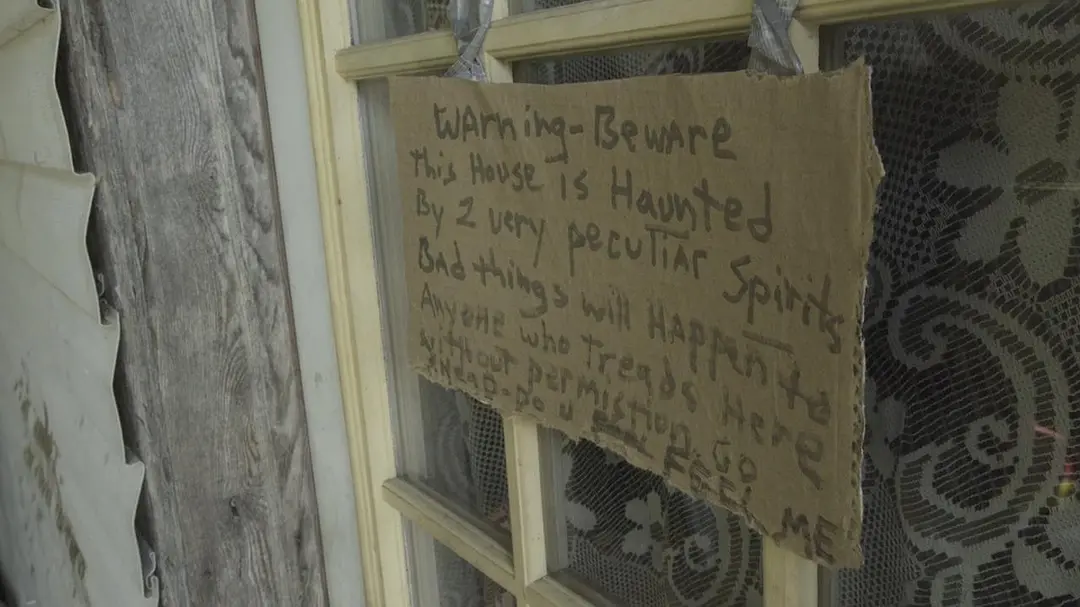 WArning-BewAre
This House is Haunted
By 2 very pecuTiAr Spirits
BAd things will HAppen to
Anyone who treads Here
without permistion. Go
AHeAD-Do U FEEL
ME